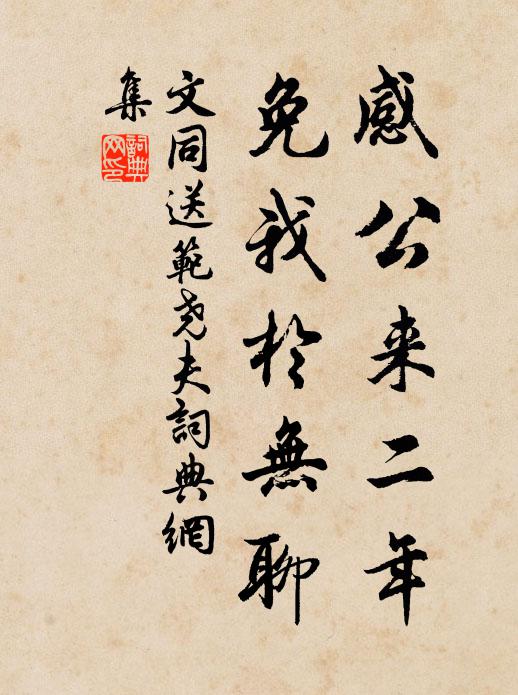 感公来二年
免我於無聊
文同送範尧夫詞典網
集
詞典
网印